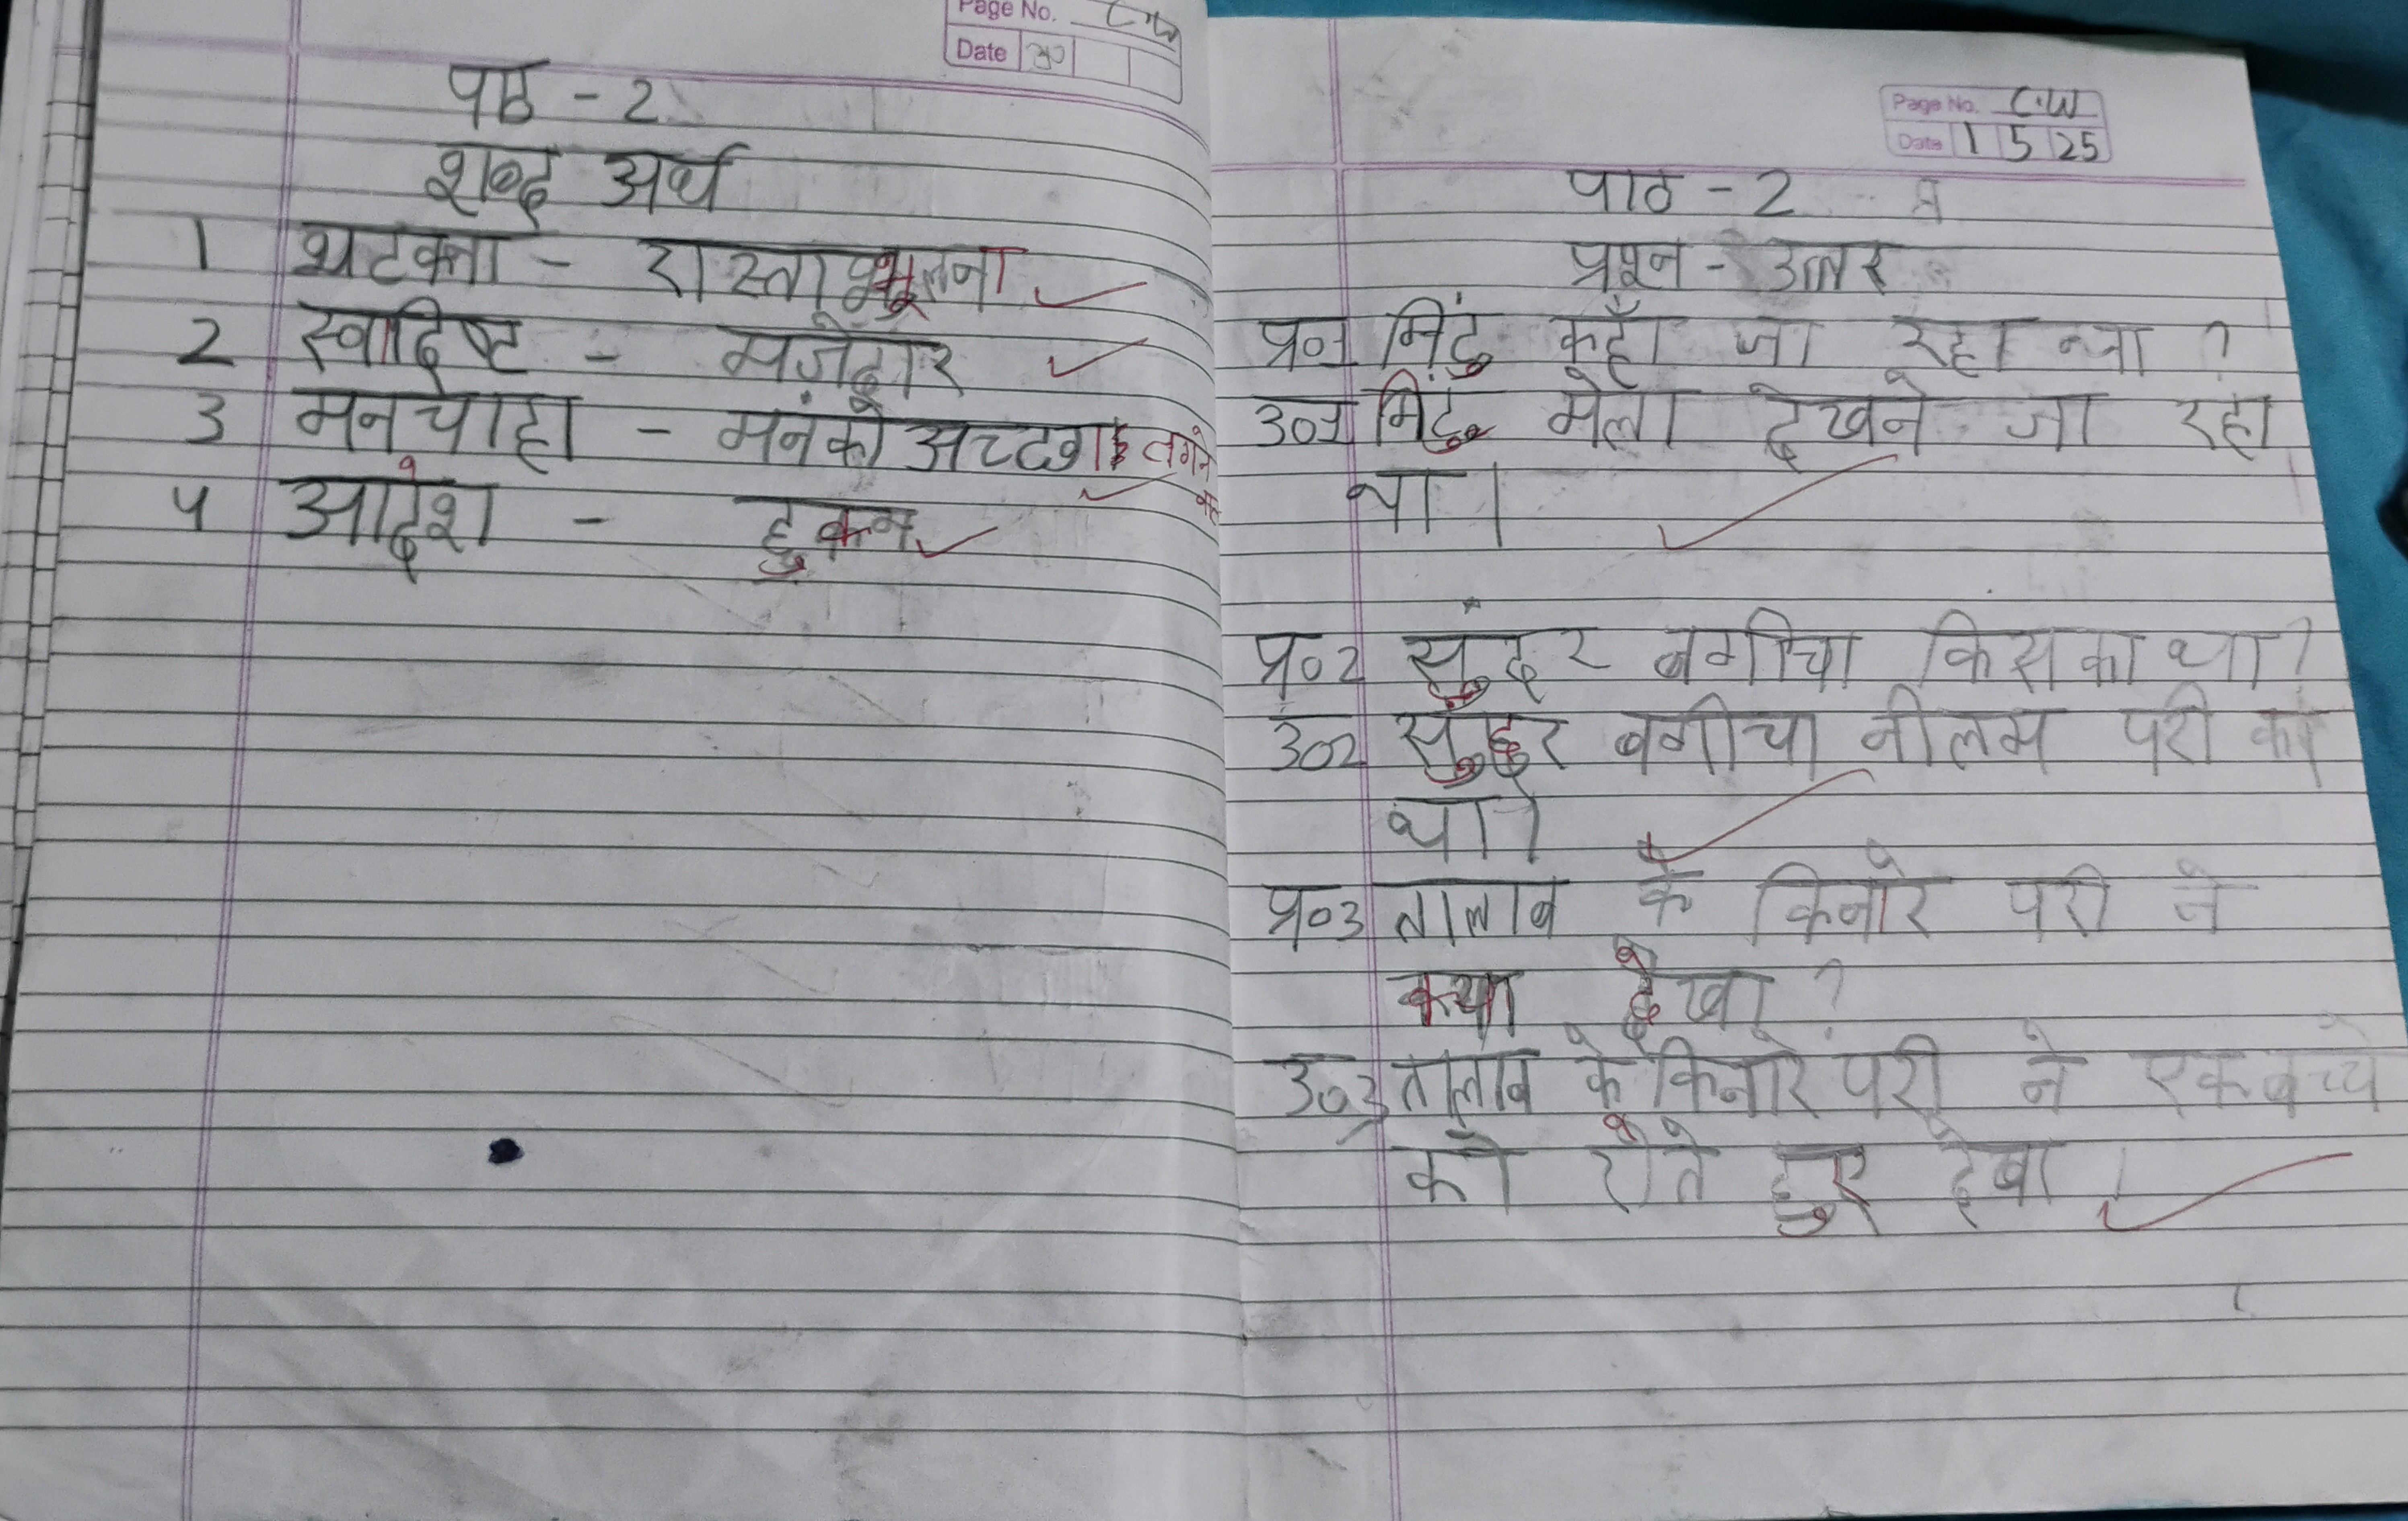 Page No. C.W
Date 30
पाठ - 2
शब्द अर्थ
1 भटकना - रास्ता भूलना
2 स्वादिष्ट - मज़ेदार
3 मनचाहा - मन को अच्छा लगने
4 आदेश - हुक्म
Page No. C.W
Date 1 5 25
पाठ - 2
प्रश्न - उत्तर
प्र०1 मिंटु कहाँ जा रहा था ?
उ०1 मिंटु मेला देखने जा रहा
था |
प्र०2 सुंदर बगीचा किसका था ?
उ०2 सुंदर बगीचा नीलम परी का
था |
प्र०3 तालाब के किनारे परी ने
क्या देखा ?
उ०3 तालाब के किनारे परी ने एक बच्चे
को रोते हुए देखा |